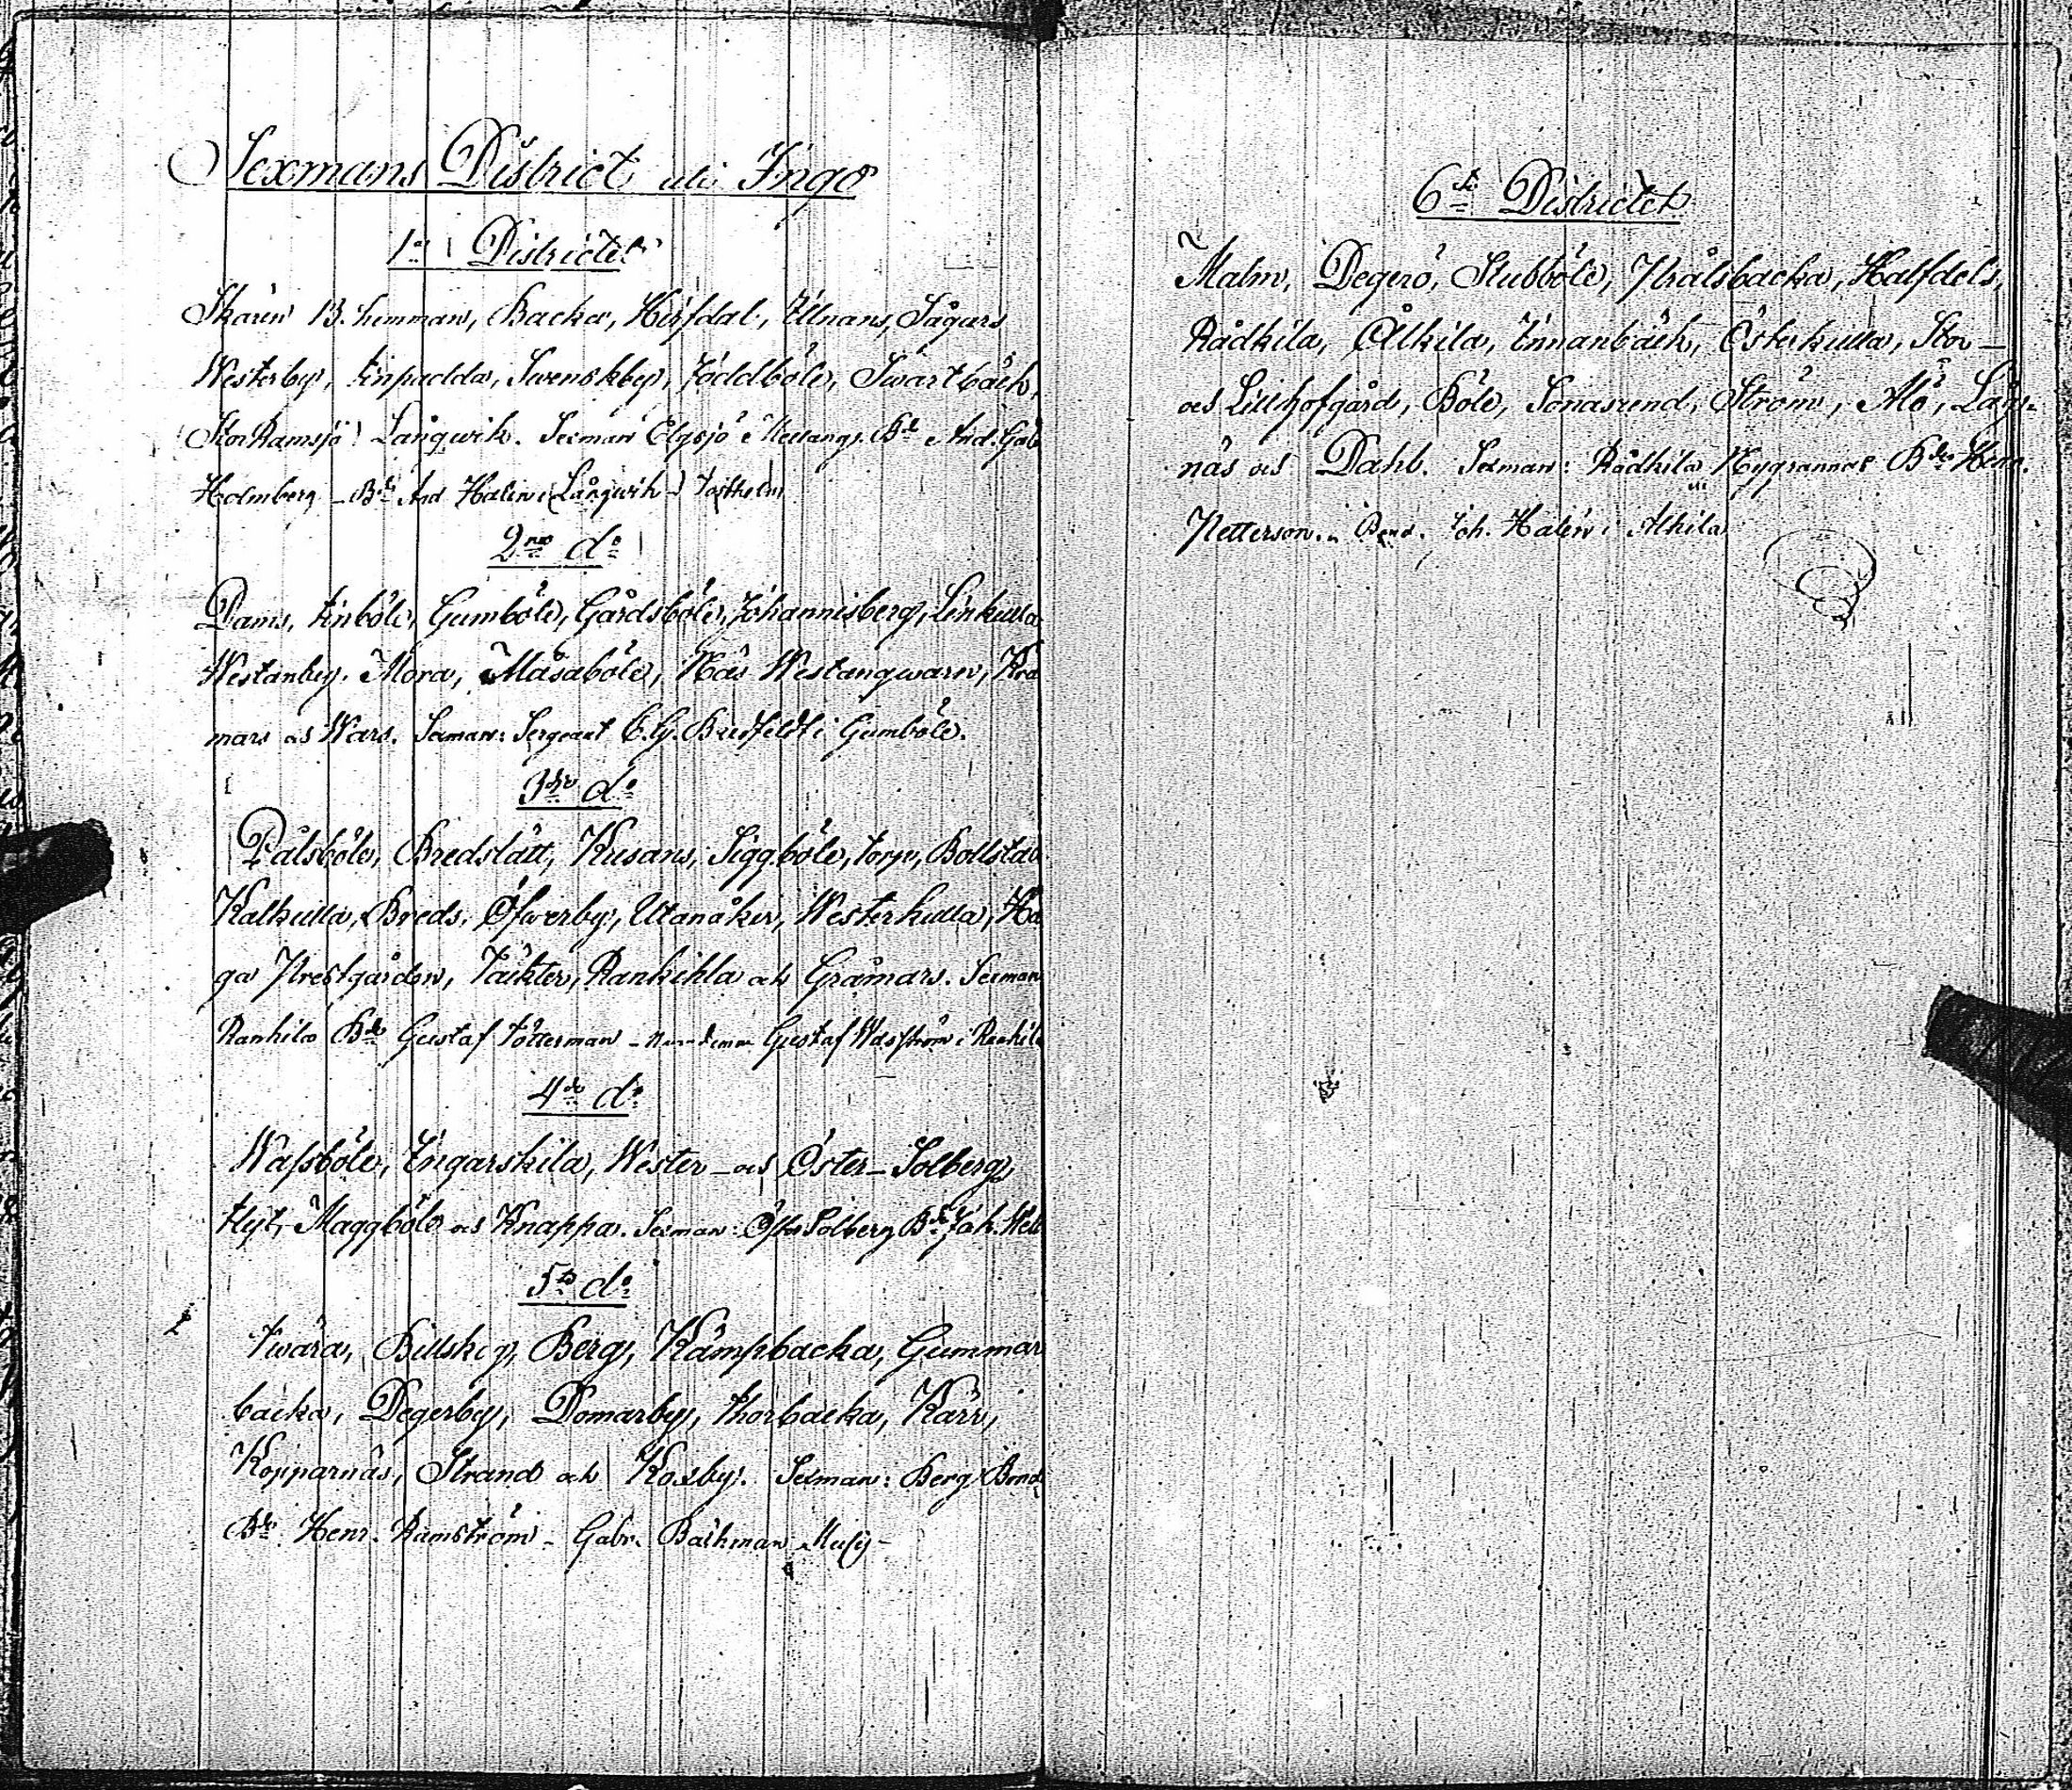 Sexmans District uti Ingo
1a Districtet
Skären 13. hemman, Backa, Hirfdal, Illnans, Sågars
Westerby, Finpadda, Swenskby, Joddböle, Swartbäck,
(Stor Ramsjö) Långwik. Sexman Elgsjö Mellangs. Bde And. Gab
Holmberg - Bde And Halin i Långwik - Jostholm
2ne do
Dams, Finböle, Gumböle, Gårdsböle, Johannisberg, Linkulla
Westanby, Mora, Måsaböle, Näs Westanqwarn, Kro
mars och Wars. Sexman: Sergeant C. G. Bredfeldt i Gumböle.
3die do
Pålsböle, Bredslätt, Kusans, Siggböle, Torp, Bollstad
Kalkulla, Breds, Öfwerby, Utanåker, Westerkulla, Ha
ga Prestgården, Täkter, Rankihla och Gråmars. Sexman
Rankila Bde Gustaf Tötterman - Gustaf Wasström i Rankila
4de do
Wassböle, Ingarskila, Wester- och Öster-Solberg,
Flyt, Maggböle och Knappa. Sexman: Öster Solberg Bde Joh. Wel
5te do
Swära, Billskog, Berg, Kämpbacka, Gummar
backa, Degerby, Domarby, Thorbacka, Kärr,
Kopparnäs, Strand och Koxby. Sexman: Berg Bond
Bde Henr. Ramström - Gabr. Backman
6te Districtet
Malm, Degerö, Stubböle, Prålsbacka, Halfdels,
Rådkila, Ålkila, Innanbäck, Österkulla, Stor-
och Lillhofgård, Böle, Jonasund, Ström, Alö, Lång-
näs och Dahl. Sexman: Rådkila Nygrannas Bde Henr.
Petterson. Bond. Joh. Halin i Ålkila